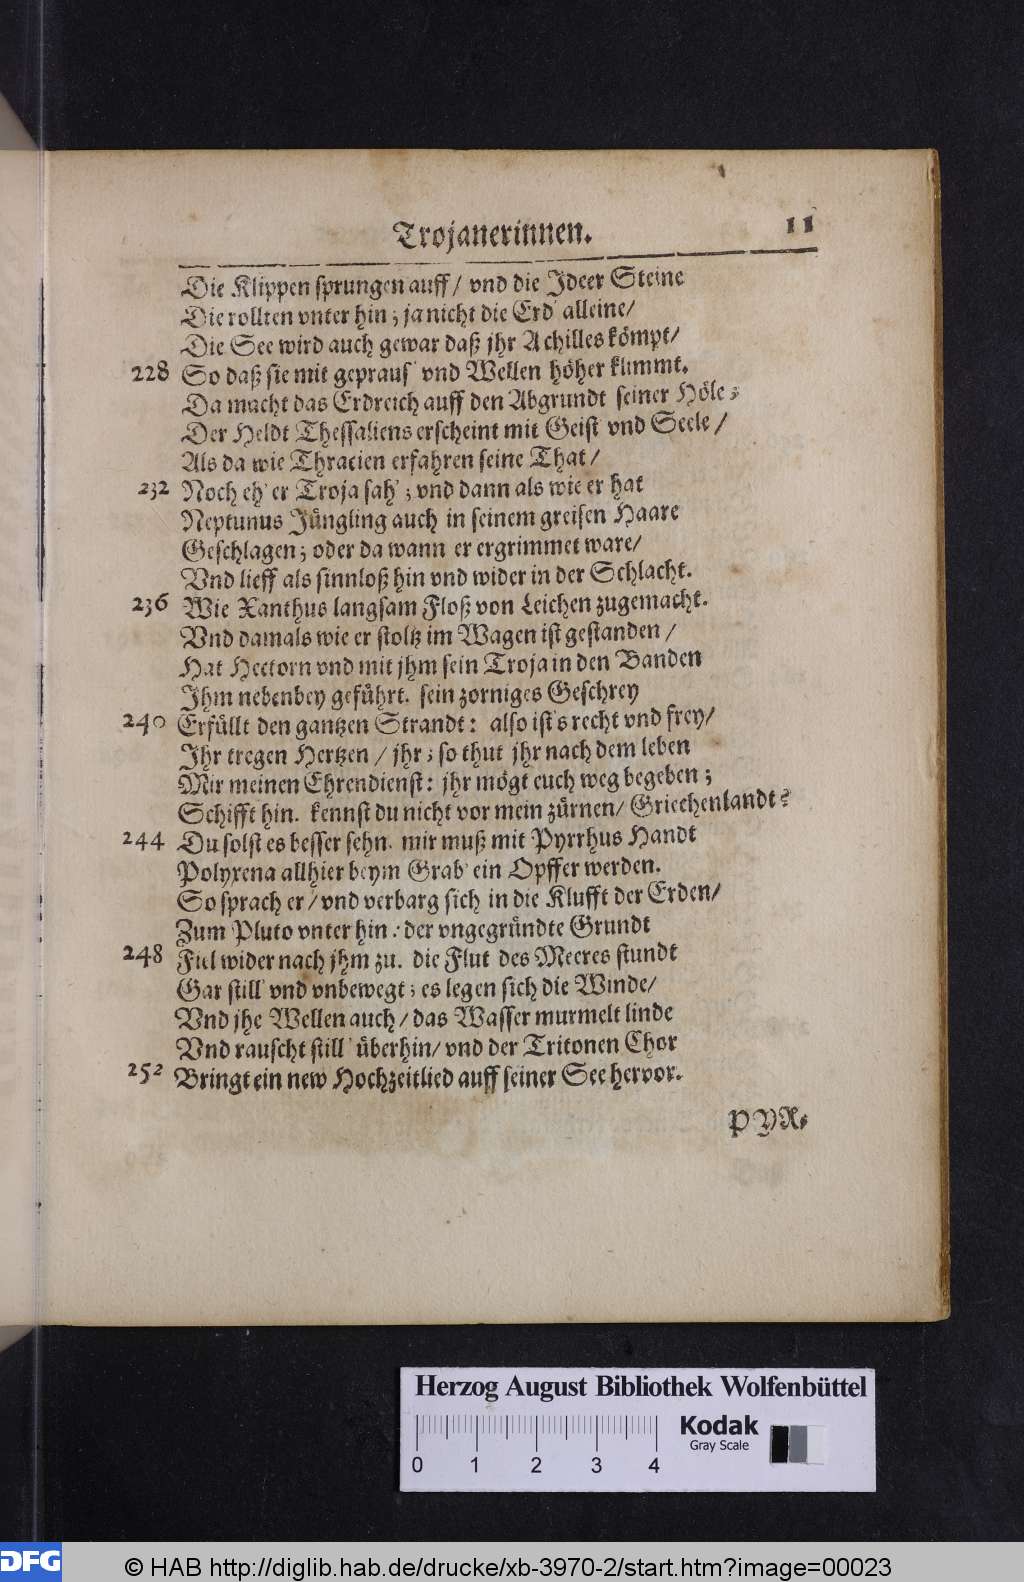 Trojanerinnen. 11
Die Klippen sprungen auff / vnd die Ideer Steine
Die rollten vnter hin; ja nicht die Erd' alleine/
Die See wird auch gewar daß jhr Achilles kömpt/
228 So daß sie mit geprauß' vnd Wellen höher klimmt.
Da macht das Erdreich auff den Abgrundt seiner Höle;
Der Heldt Thessaliens erscheint mit Geist vnd Seele /
Als da wie Thracien erfahren seine That /
232 Noch eh' er Troja sah'; vnd dann als wie er hat
Neptunus Jüngling auch in seinem greisen Haare
Geschlagen; oder da wann er ergrimmet ware/
Vnd lieff als sinnloß hin vnd wider in der Schlacht.
236 Wie Xanthus langsam Floß von Leichen zugemacht.
Vnd damals wie er stoltz im Wagen ist gestanden /
Hat Hectorn vnd mit jhm sein Troja in den Banden
Ihm nebenbey geführt. sein zorniges Geschrey
240 Erfüllt den gantzen Strandt: also ist's recht vnd frey/
Ihr tregen Hertzen / jhr; so thut jhr nach dem leben
Mir meinen Ehrendienst: jhr mögt euch weg begeben;
Schifft hin. kennst du nicht vor mein zürnen/ Griechenlandt?
244 Du solst es besser sehn. mir muß mit Pyrrhus Handt
Polyxena allhier beym Grab' ein Opffer werden.
So sprach er / vnd verbarg sich in die Klufft der Erden/
Zum Pluto vnter hin: der vngegründte Grundt
248 Fiel wider nach jhm zu. die Flut des Meeres stundt
Gar still' vnd vnbewegt; es legen sich die Winde/
Vnd jhe Wellen auch / das Wasser murmelt linde
Vnd rauscht still' überhin/ vnd der Tritonen Chor
252 Bringt ein new Hochzeitlied auff seiner See hervor.
PYR-
Herzog August Bibliothek Wolfenbüttel
Kodak
Gray Scale
0 1 2 3 4
DFG © HAB http://diglib.hab.de/drucke/xb-3970-2/start.htm?image=00023